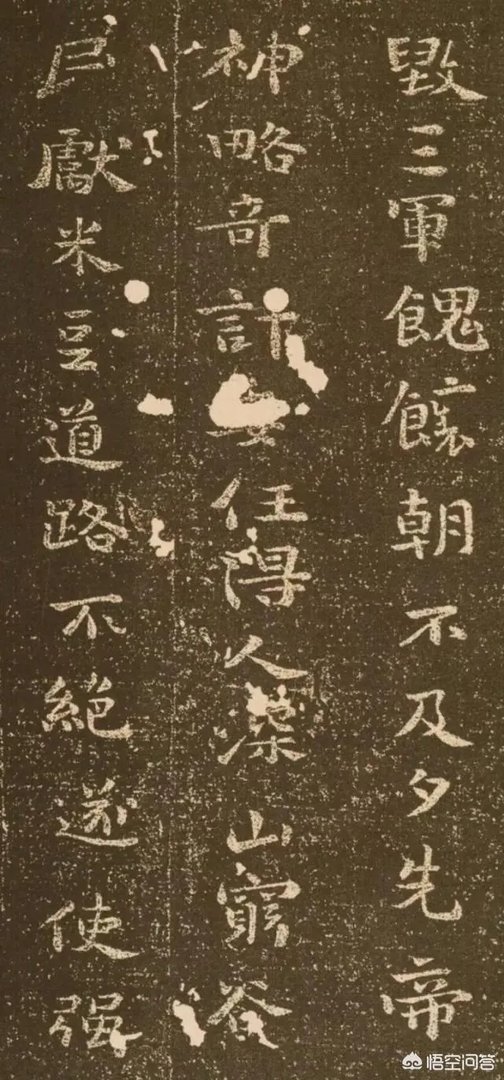 毀三軍餽饟朝不及夕先帝
神略奇計委任得人深山窮谷
民獻米豆道路不絕遂使強
悟空问答